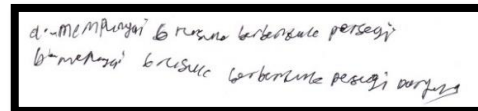 a. mempunyai 6 rusuk berbentuk persegi
b. mempunyai 6 rusuk berbentuk pesegi panjang